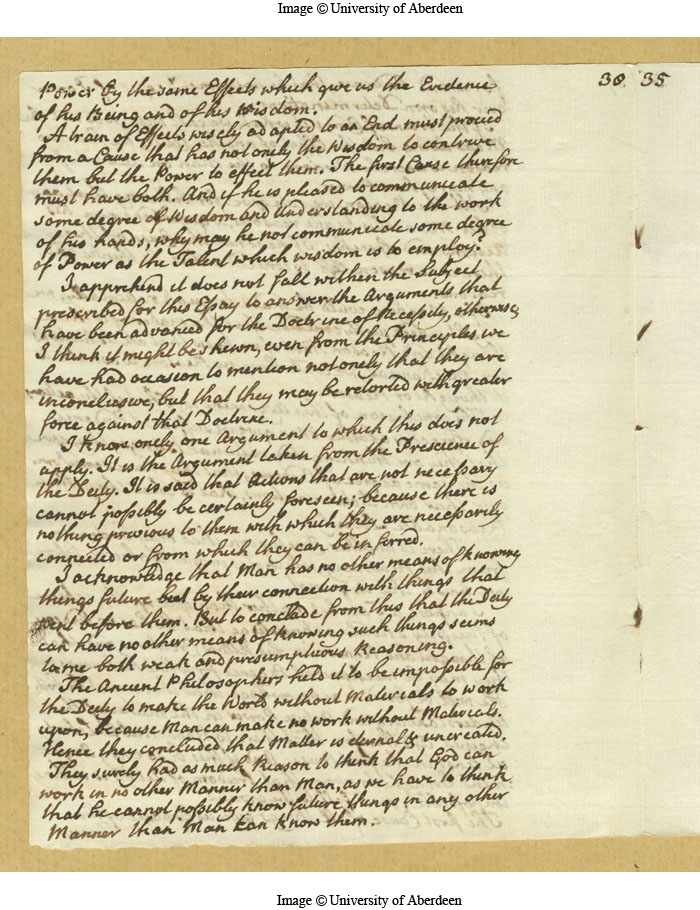 Image © University of Aberdeen
30 35
Power by the same Effects which give us the Evidence
of his Being and of his Wisdom.
A train of Effects wisely adapted to an End must proceed
from a Cause that has not onely the Wisdom to contrive
them but the Power to effect them. The first Cause therefore
must have both. And if he is pleased to communicate
some degree of Wisdom and Understanding to the work
of his hands, why may he not communicate some degree
of Power as the Talent which wisdom is to employ?
I apprehend it does not fall within the Subject
prescribed for this Essay to answer the Arguments that
have been advanced for the Doctrine of Necessity, otherwise,
I think it might be shewn, even from the Principles we
have had occasion to mention not onely that they are
inconclusive, but that they may be retorted with greater
force against that Doctrine.
I know onely one Argument to which this does not
apply. It is the Argument taken from the Prescience of
the Deity. It is said that Actions that are not necessary
cannot possibly be certainly foreseen; because there is
nothing previous to them with which they are necessarily
connected or from which they can be inferred.
I acknowledge that Man has no other means of knowing
things future but by their connection with things that
went before them. But to conclude from this that the Deity
can have no other means of knowing such things seems
to me both weak and presumptuous Reasoning.
The Ancient Philosophers held it to be impossible for
the Deity to make the World without Materials to work
upon, because Man can make no work without Materials.
Hence they concluded that Matter is eternal & uncreated.
They surely had as much Reason to think that God can
work in no other Manner than Man, as we have to think
that he cannot possibly know future things in any other
Manner than Man can know them.
Image © University of Aberdeen